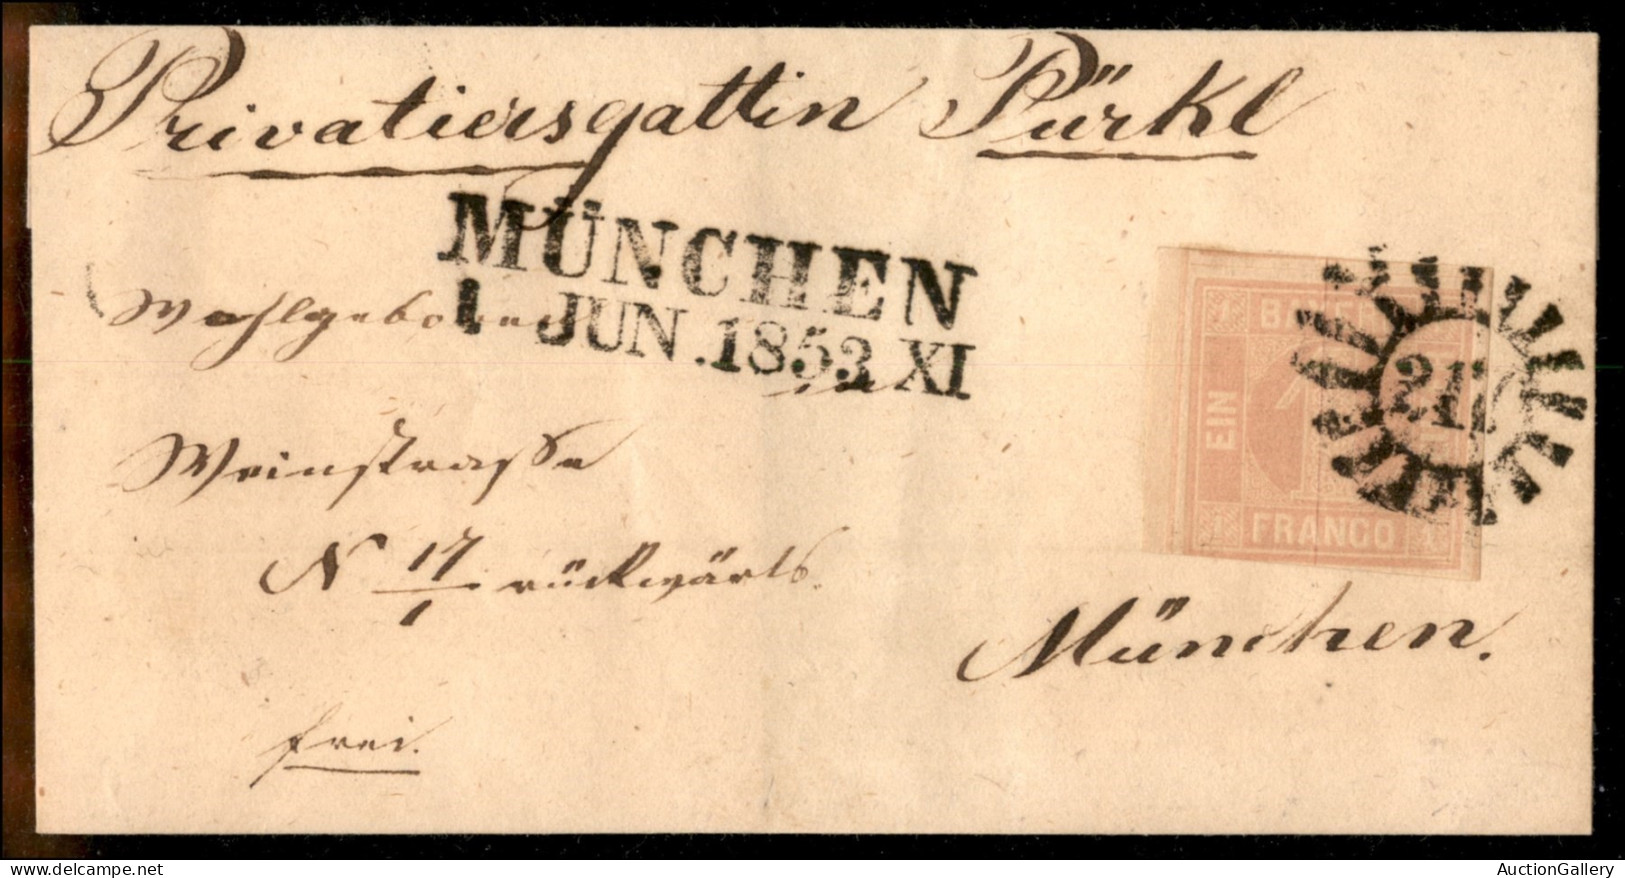 Privatiersgattin Pürkl
MÜNCHEN
1 JUN. 1853 XI
Wohlgeboren
in
Weinstrasse
N 17/1 rückwärts.
München.
frei.
1 BAYER
EIN
1 FRANCO 1
AuctionGallery